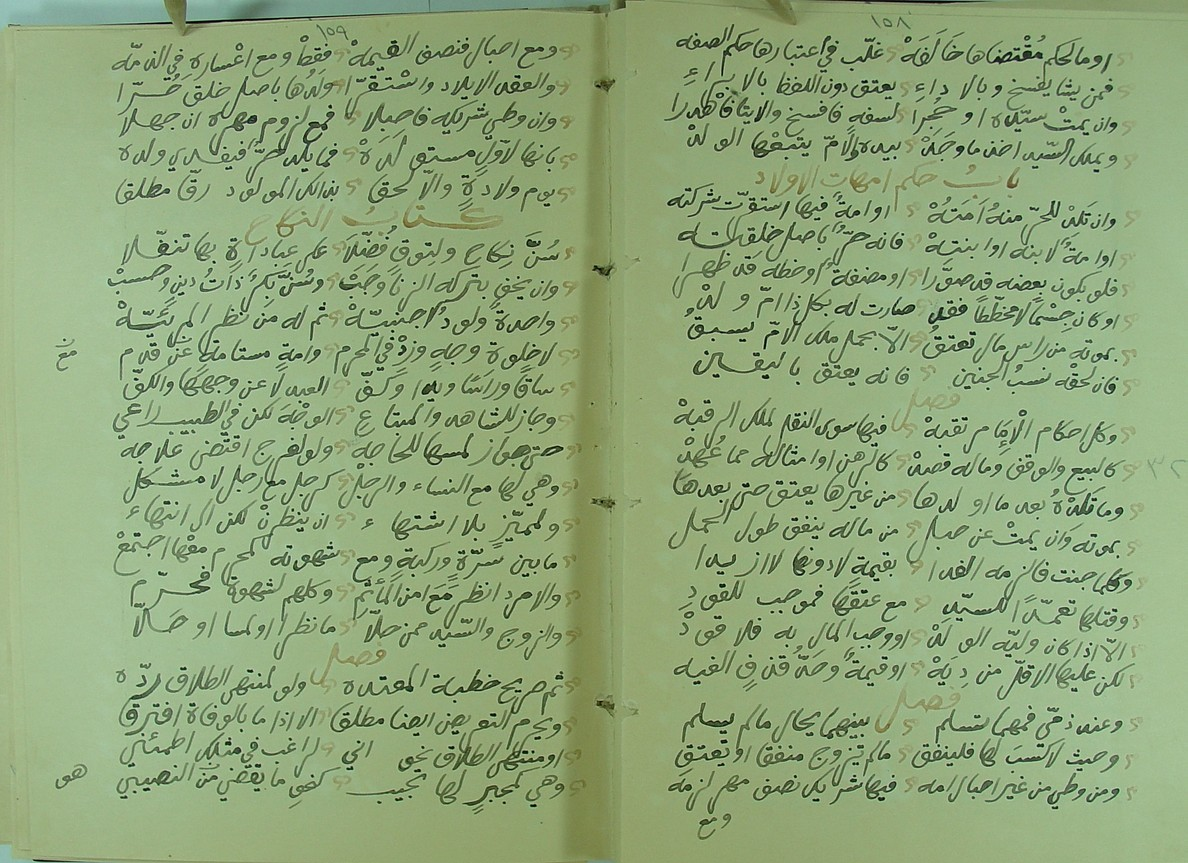 ١٥٨
او مالحكم مُقْتضاها خَالَفَهْ غلّب في اعتبارها حكم الصفه
فمن يشا يفسخ وبالاداءِ يعتق دون اللفظ بالابراءِ
وان يمتْ سيّده او حُجرا لسفه فافسخ والايتا
ويملك السّيد اخذ ما وجَدْ بيده والامّ يتبعها الولدْ
بابُ حكم امهات الاولاد
وان تلدْ للحرّ منهُ اَمَتُهْ او امةٌ فيها استقرّت شركته
او امةٌ لابنه او ابنتهْ فانه حرٌّ باصل خلقته
فلو يكون بعضه قد صوّرا او مضغة وخطه قد ظهرا
او كان جسْماً لا مخطّطاً فقد صارت له بكل ذا امّ ولدْ
بموته من راس مال تعتقُ الا بحمل ملك الامّ يسبقُ
فان لحقْه نسبُ الجنين فانه يعتق باليقين
فصل
وكل احكام الاِماِم تقبهْ فيها سوى النقل لملك الرقبهْ
كالبيع والوقف وما له قصدْ كالرهن او امثاله مما عُهدْ
وما تلدْهُ بعد ما اولدها من غيرها يعتق حتى بعدها
بموته وان يمتْ عن حبل من ماله ينفق طول الحمل
وكلما جنت فالزمه الفدا بقيمة لا دونها لا ازيدا
وقتلها تعمّداً للسيّدِ مع عتقها فموجب للقودِ
الاّ اذا كان وليّه الولدْ او وجب المال به فلا قودْ
لكن عليها الاقلّ من دِيَهْ او قيمةٌ وحدّ قذف الغيه
فصل
وعند ذمّي فمهما تسلم بينهما يحال ما لم يسلم
وحيث لا كسبَ لها فلينفق ما لم تزوج منفقا او تعتق
ومن وطي من غير احبال امه فيها شريك نصف مهر لزمه
ومع
١٥٩
ومع احبال فنصف القيمهْ فقطْ ومع اعساره في الذمّه
والعقد الايلاد واسْتقرّا ولَدُها باصل خلق حُرّا
وان وطي شريكه فاحبلا فمع لزوم مهره ان جهلا
بانها لاوّل مستولَدَهْ فما يلد حرٌّ فيفدي ولده
يوم ولادةٍ والّا لحقا بذلك المولود رقّا مطلقا
كتابُ النكاح
سُنَّ نِكاح ولتوقٍ فُضّلا على عبادةٍ بها تنفّلا
وان يخف بتركه الزنا وجَبْ وسُنَّ بكرٌ ذاتُ دين وحسبْ
واحدةٌ ولود اجنبيّهْ ثم له من نظر المرئيّهْ
لا خلوة وجهٍ وزدْ في المحرم وامةٍ مستامةٍ عن قدم
مع
ساقًا وراسًا ويدا وكفّ العبد لا عن وجهها والكفّ
وجاز للشاهد والمبتاع الوجْه لكن في الطبيب راعي
حتى جواز لمسها للحاجه ولو لفرج اقتضى علاجه
وهي لها مع النساء والرجلْ كرجل مع رجل لا مشكل
ولمميّز بلا اشتهاء ان ينظرنْ لكن الى انتهاء
ما بين سرّة وركبة ومع شهوته المحرم معْها اجتمعْ
والامرد انظر مَعَ امن المأثم وكلهم لشهوة فحرّم
والزوج والسّيد ممن حلاّ ما نظرا او لمسا او حَلّا
فصل
ثم صريح خطبة المعتده ولو لمنتهى الطلاق ردّه
ويحرم التعريض ايضا مطلقا الا اذا ما بالوفاة افترقا
او منتهى الطلاق نحو اني لراغب في مثلك اطمئني
وهي كمجبرٍ لها تجيب كنحو ما يقضي من النصيبِ
هو